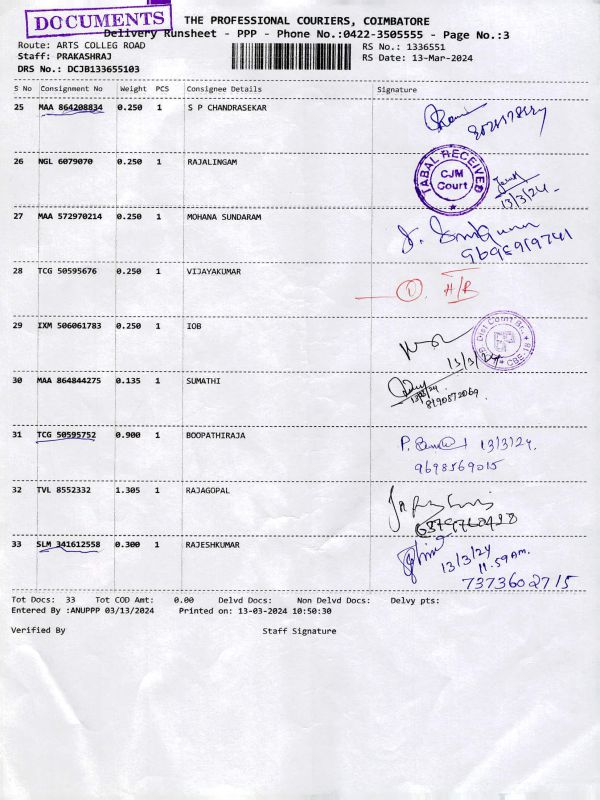 DOCUMENTS
THE PROFESSIONAL COURIERS, COIMBATORE
Delivery Runsheet - PPP - Phone No.:0422-3505555 - Page No.:3
Route: ARTS COLLEG ROAD
RS No.: 1336551
Staff: PRAKASHRAJ
RS Date: 13-Mar-2024
DRS No.: DCJB133655103
S No Consignment No Weight PCS Consignee Details Signature
25 MAA 864208834 0.250 1 S P CHANDRASEKAR
26 NGL 6079070 0.250 1 RAJALINGAM
TABAL RECEIVED
CJM
Court
13/3/24
27 MAA 572970214 0.250 1 MOHANA SUNDARAM
28 TCG 50595676 0.250 1 VIJAYAKUMAR
29 IXM 506061783 0.250 1 IOB
13/3/24
30 MAA 864844275 0.135 1 SUMATHI
8190872069
31 TCG 50595752 0.900 1 BOOPATHIRAJA
13/3/24.
9698569015
32 TVL 8552332 1.305 1 RAJAGOPAL
33 SLM 341612558 0.300 1 RAJESHKUMAR
13/3/24
11.59 Am.
7373602715
Tot Docs: 33 Tot COD Amt: 0.00 Delvd Docs: Non Delvd Docs: Delvy pts:
Entered By :ANUPPP 03/13/2024 Printed on: 13-03-2024 10:50:30
Verified By Staff Signature